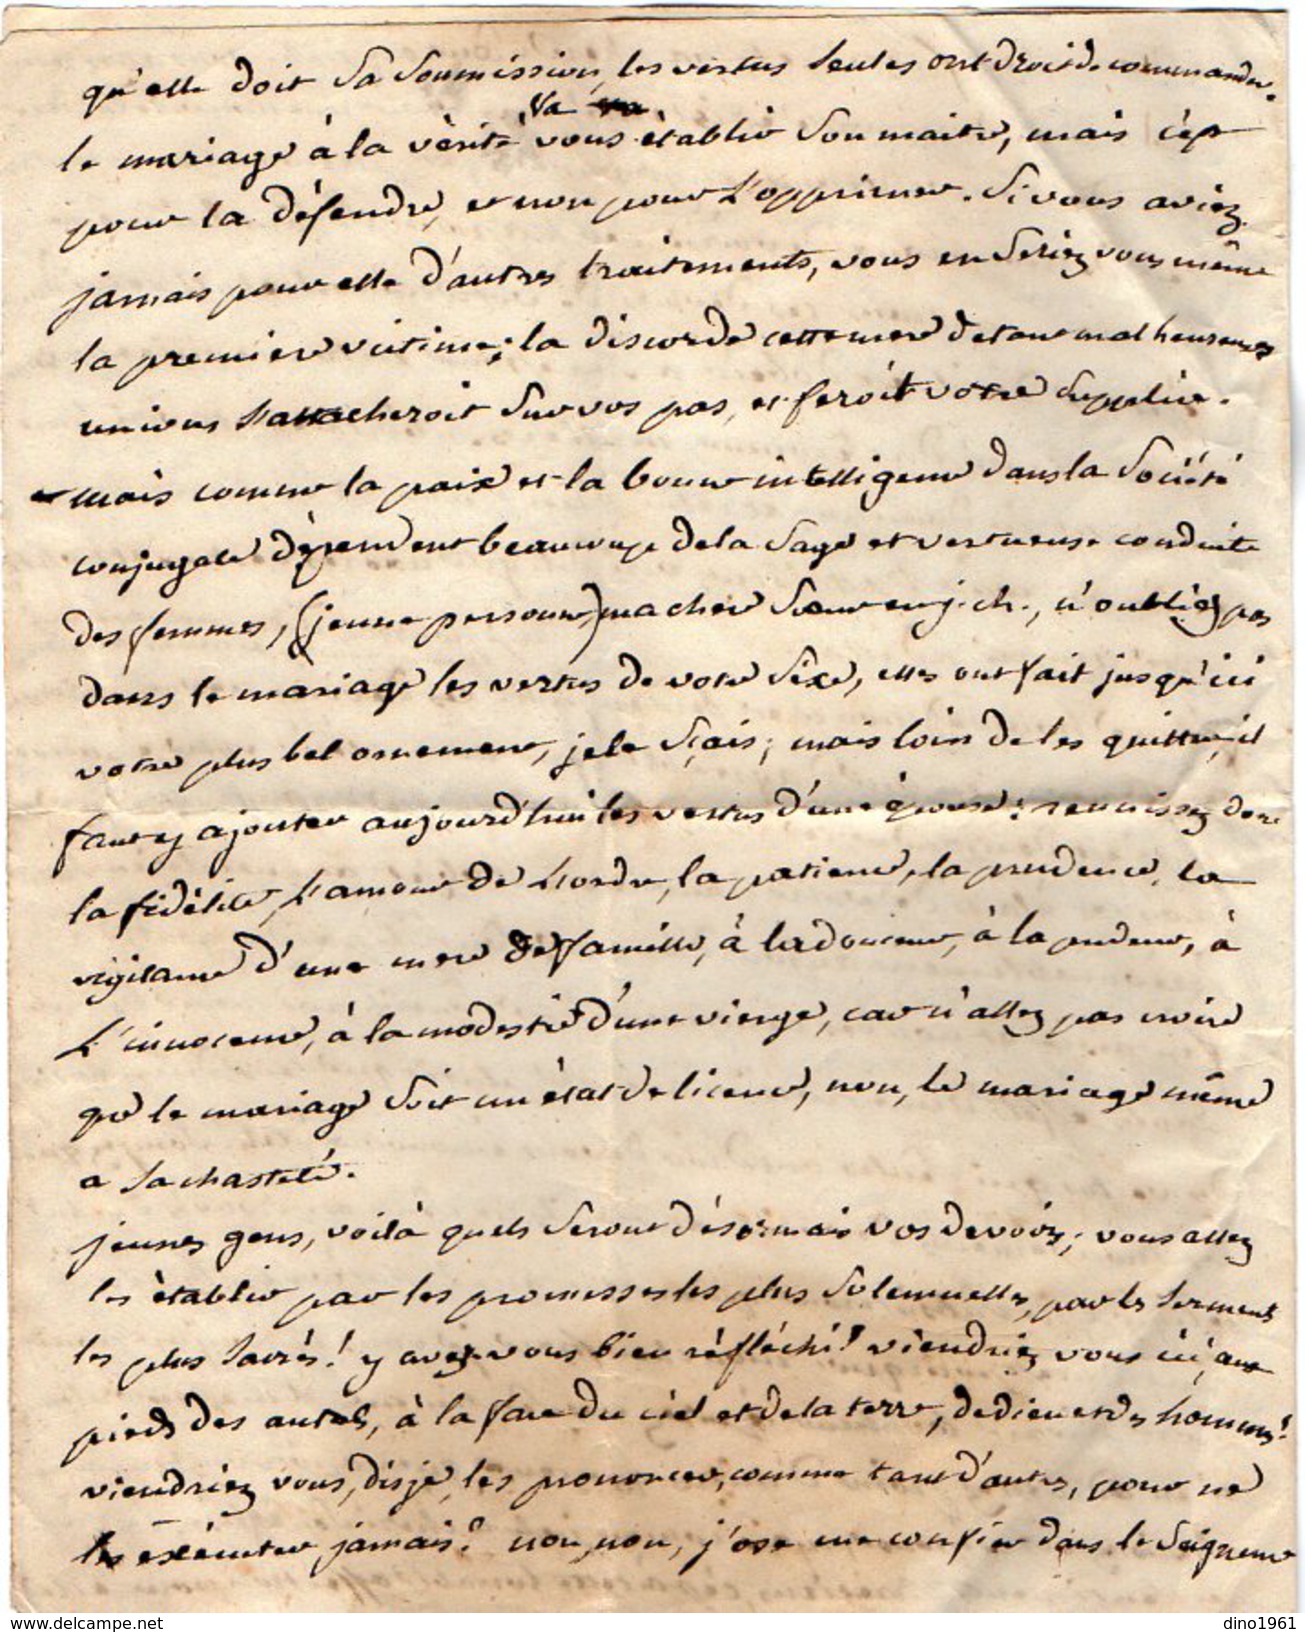 qu'elle doit sa soumission, les vertus seules ont droit de commander.
le mariage à la vérité va vous établir son maitre, mais c'est
pour la défendre, et non pour l'opprimer. si vous aviez
jamais pour elle d'autres traitements, vous en seriez vous même
la premiere victime; la discorde cette mere de tant malheureuses
unions s'attacheroit sur vos pas, et feroit votre supplice.
mais comme la paix et la bonne intelligence dans la société
conjugale dépendent beaucoup de la sage et vertueuse conduite
des femmes, (jeune personne) ma chere sœur en j. ch., n'oubliez pas
dans le mariage les vertus de votre sexe, elles ont fait jusqu'ici
votre plus bel ornement, je le sçais; mais loin de les quitter, il
faut y ajouter aujourd'hui les vertus d'une épouse: reunissez donc
la fidélité, l'amour de l'ordre, la patience, la prudence, la
vigilance d'une mere de famille, à la douceur, à la pudeur, à
l'innocence, à la modestie d'une vierge, car n'allez pas croire
que le mariage soit un état de licence, non, le mariage même
a sa chasteté.
jeunes gens, voilà quels seront désormais vos devoirs; vous allez
les établir par les promesses les plus solemnelles, par les serments
les plus sacrés! y avez-vous bien réfléchi? viendriez vous ici, aux
pieds des autels, à la face du ciel et de la terre, de dieu et des hommes!
viendriez vous, dis je, les prononcer, comme tant d'autres, pour ne
les exécuter jamais? non, non, j'ose me confier dans le seigneur
dino1961